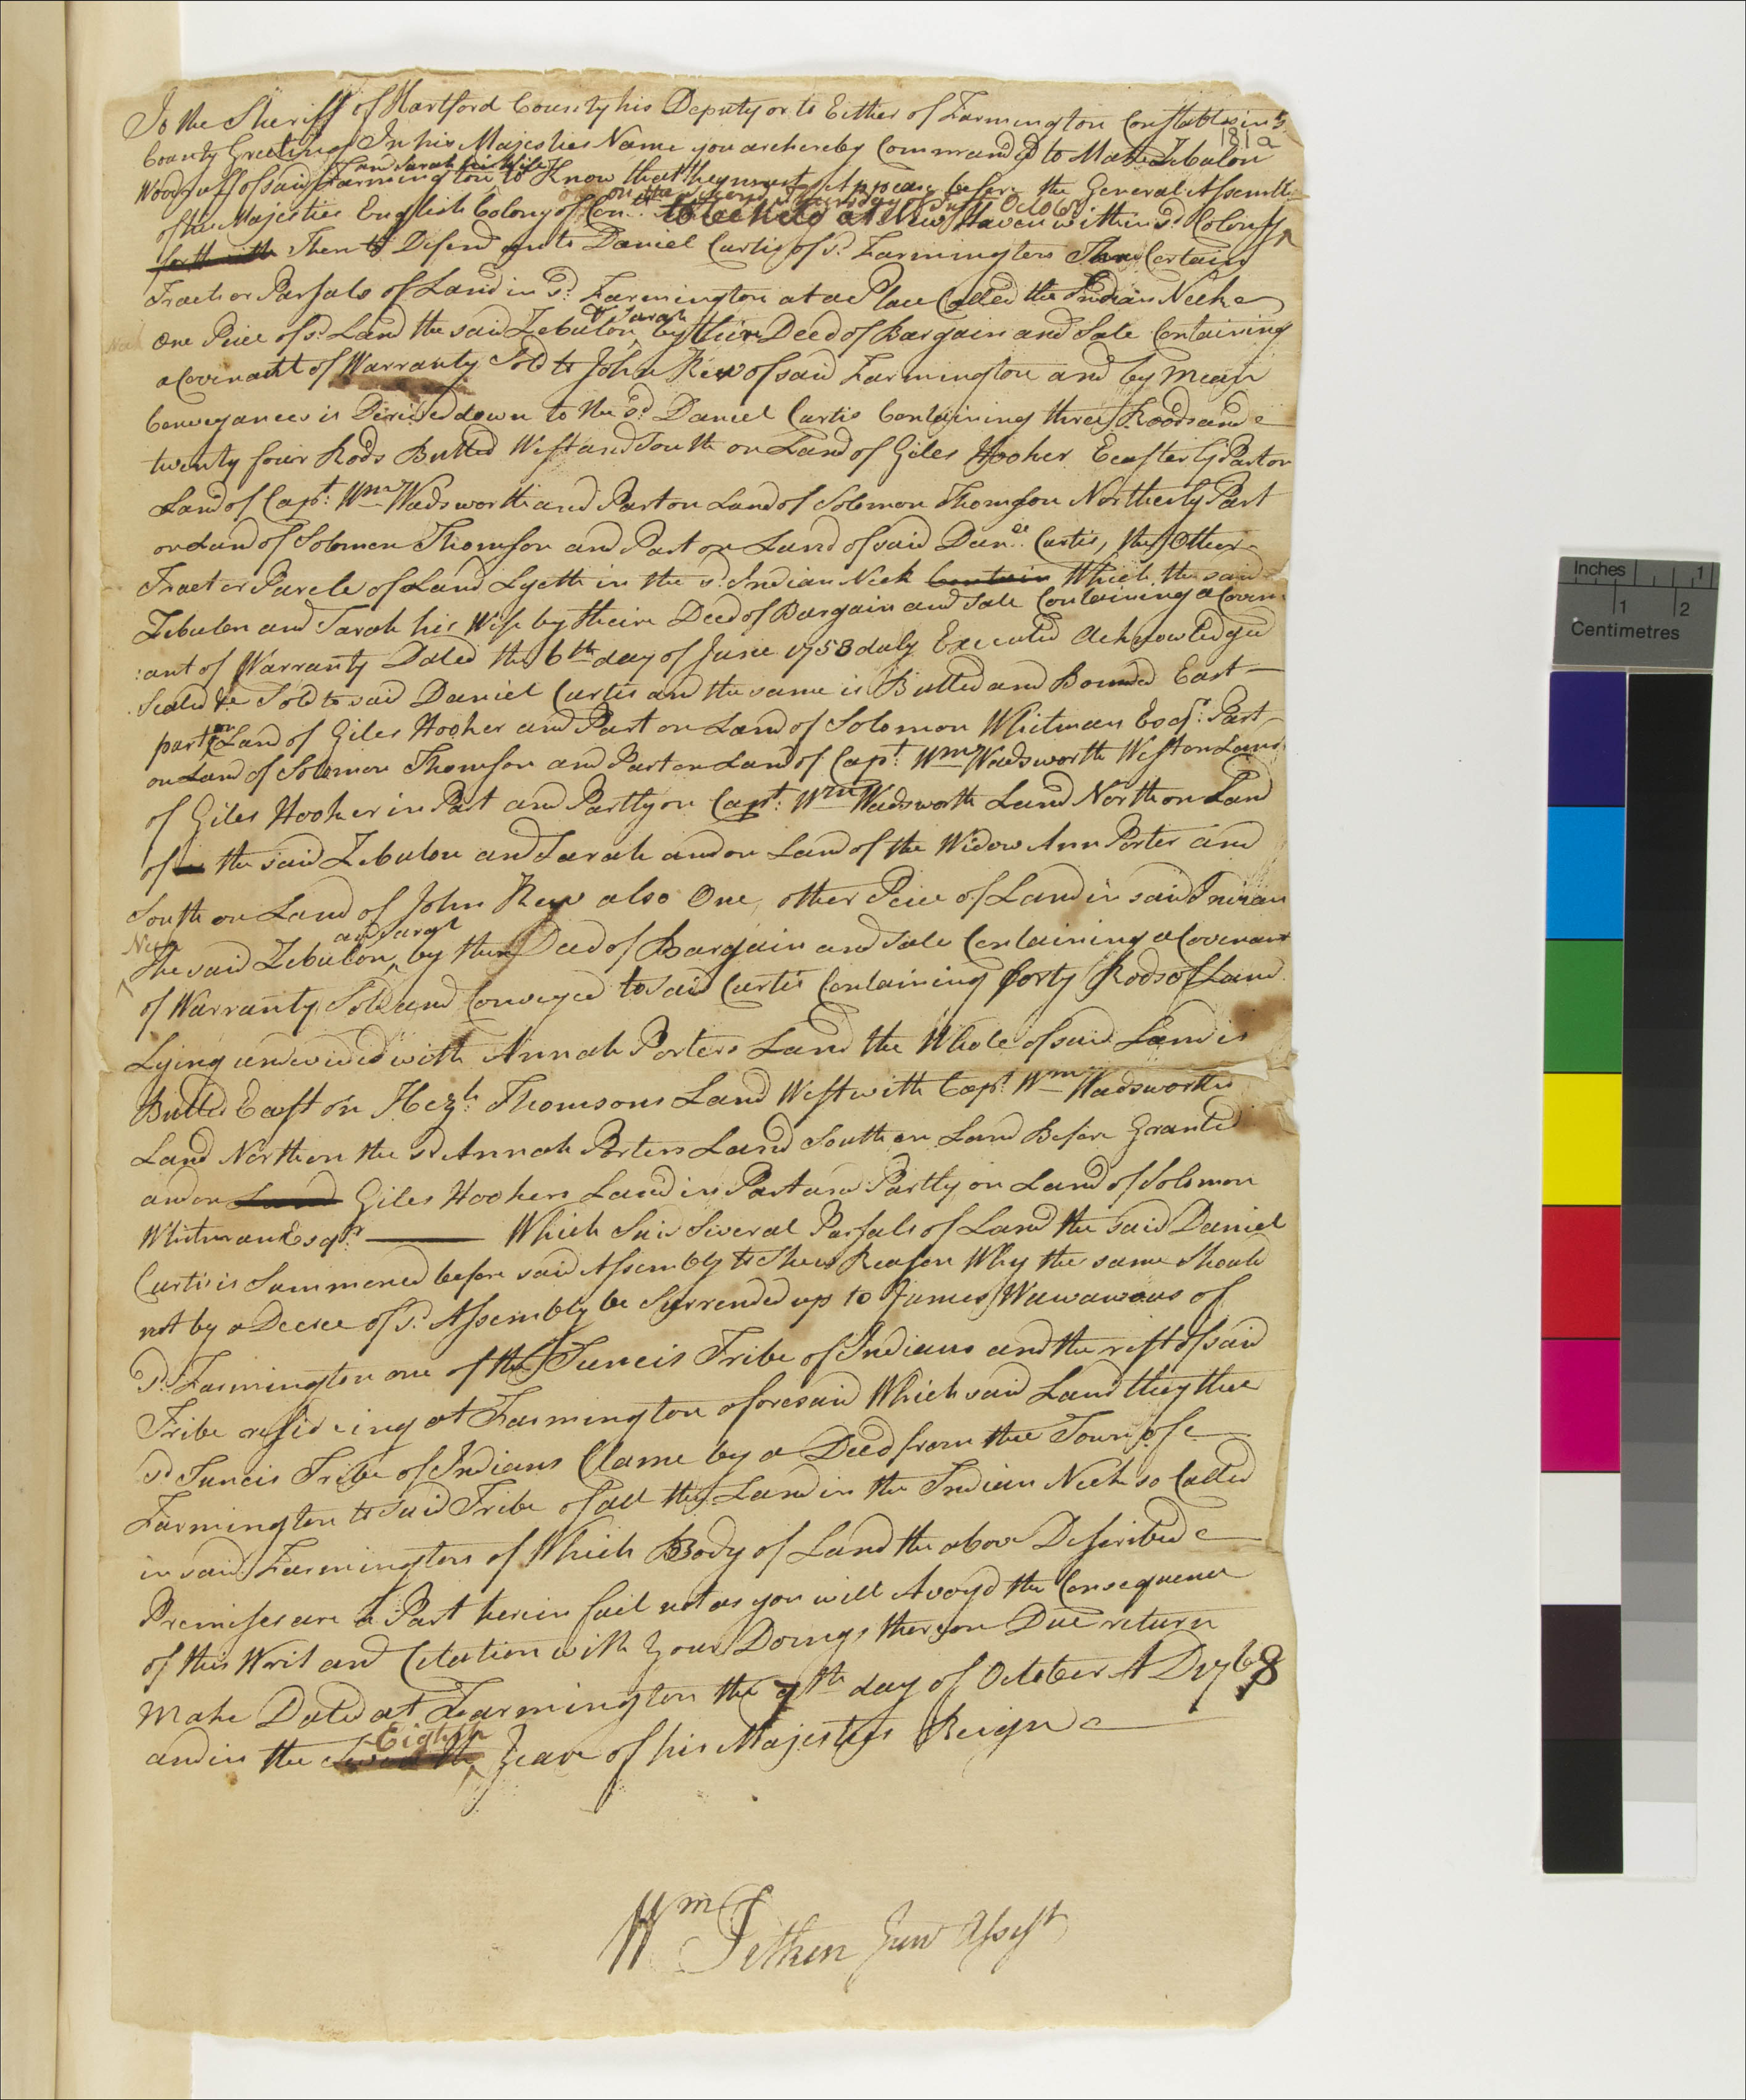 To the Sheriff of Hartford County his Deputy or to Either of Farmington Constables in sd
181a
County Greeting In his Majesties Name you are hereby Commanded to Make Zebulon
and Sarah his Wife
Woodruff of said Farmington to Know that they must Appear before the General Assembly
on the second Thursday of October
of his Majesties English Colony of Con:tt to be held at New Haven within sd Colony
forth with Then to Defend unto Daniel Curtis of sd. Farmington Certain
Tract or Parsals of Land in sd: Farmington at a Place Called the Indian Neck
& Sarah
one Peice of sd Land the said Zebulon by their Deed of Bargain and Sale Containing
a Covenant of Warranty Sold to John Rew of said Farmington and by Mean
Conveyances is Derived down to the sd Daniel Curtis Containing three Roods and
twenty four Rods Butted West and South on Land of Giles Hooker Easterly Part on
Land of Capt: Wm Wadsworth and Part on Land of Solomon Thomson Northerly Part
on Land of Solomon Thomson and Part on Land of said Danel: Curtis, the Other
Tract or Parcle of Land Lyeth in the sd Indian Neck Contain Which the said
Zebulon and Sarah his Wife by theire Deed of Bargain and Sale Containing a Coven
:ant of Warranty Dated the 6th day of June 1758 duly Executed Acknowledged
Sealed &c Sold to said Daniel Curtis and the same is Butted and Bounded East
part on Land of Giles Hooker and Part on Land of Solomon Whitman Esqr: Part
on Land of Solomon Thomson and Part on Land of Capt. Wm Wadsworth West on Land
of Giles Hooker in Part and Partly on Capt: Wm Wadsworth Land North on Land
of the said Zebulon and Sarah and on Land of the Widow Ann Porter and
South on Land of John Rew also One, other Peice of Land in said Indian
Neck and Sarah
The said Zebulon, by their Deed of Bargain and Sale Containing a Covenant
of Warranty Sold and Conveyed to said Curtis Containing forty Rods of Land
Lying undevided with Annah Porters Land the Whole of said Land is
Butted East on Hezh: Thomsons Land West with Capt Wm Wadsworths
Land North on the sd Annah Porters Land South on Land Before Granted
and on Land Giles Hookers Land in Part and Partly on Land of Solomon
Whitman Esqr: Which Said Several Parsals of Land the said Daniel
Curtis is Summoned before said Assembly to Shew Reason Why the same Should
not by a Decree of sd. Assembly be Surrended up to James Wawawous of
sd: Farmington one of the Tuncis Tribe of Indians and the rest of said
Tribe residing at Farmington aforesaid Which said Land they the
sd Tuncis Tribe of Indians Clame by a Deed from the Town of
Farmington to said Tribe of all the Land in the Indian Neck so Called
in said Farmington of Which Body of Land the above Described
Premises are a Part herein fail not as you will Avoyd the Consequence
of this Writ and Citation with your Doings thereon Due return
Make Dated at Farmington the 7th day of October AD 1768
Eighth
and in the Year of his Majesties Reign
Wm Pitkin Junr Assist